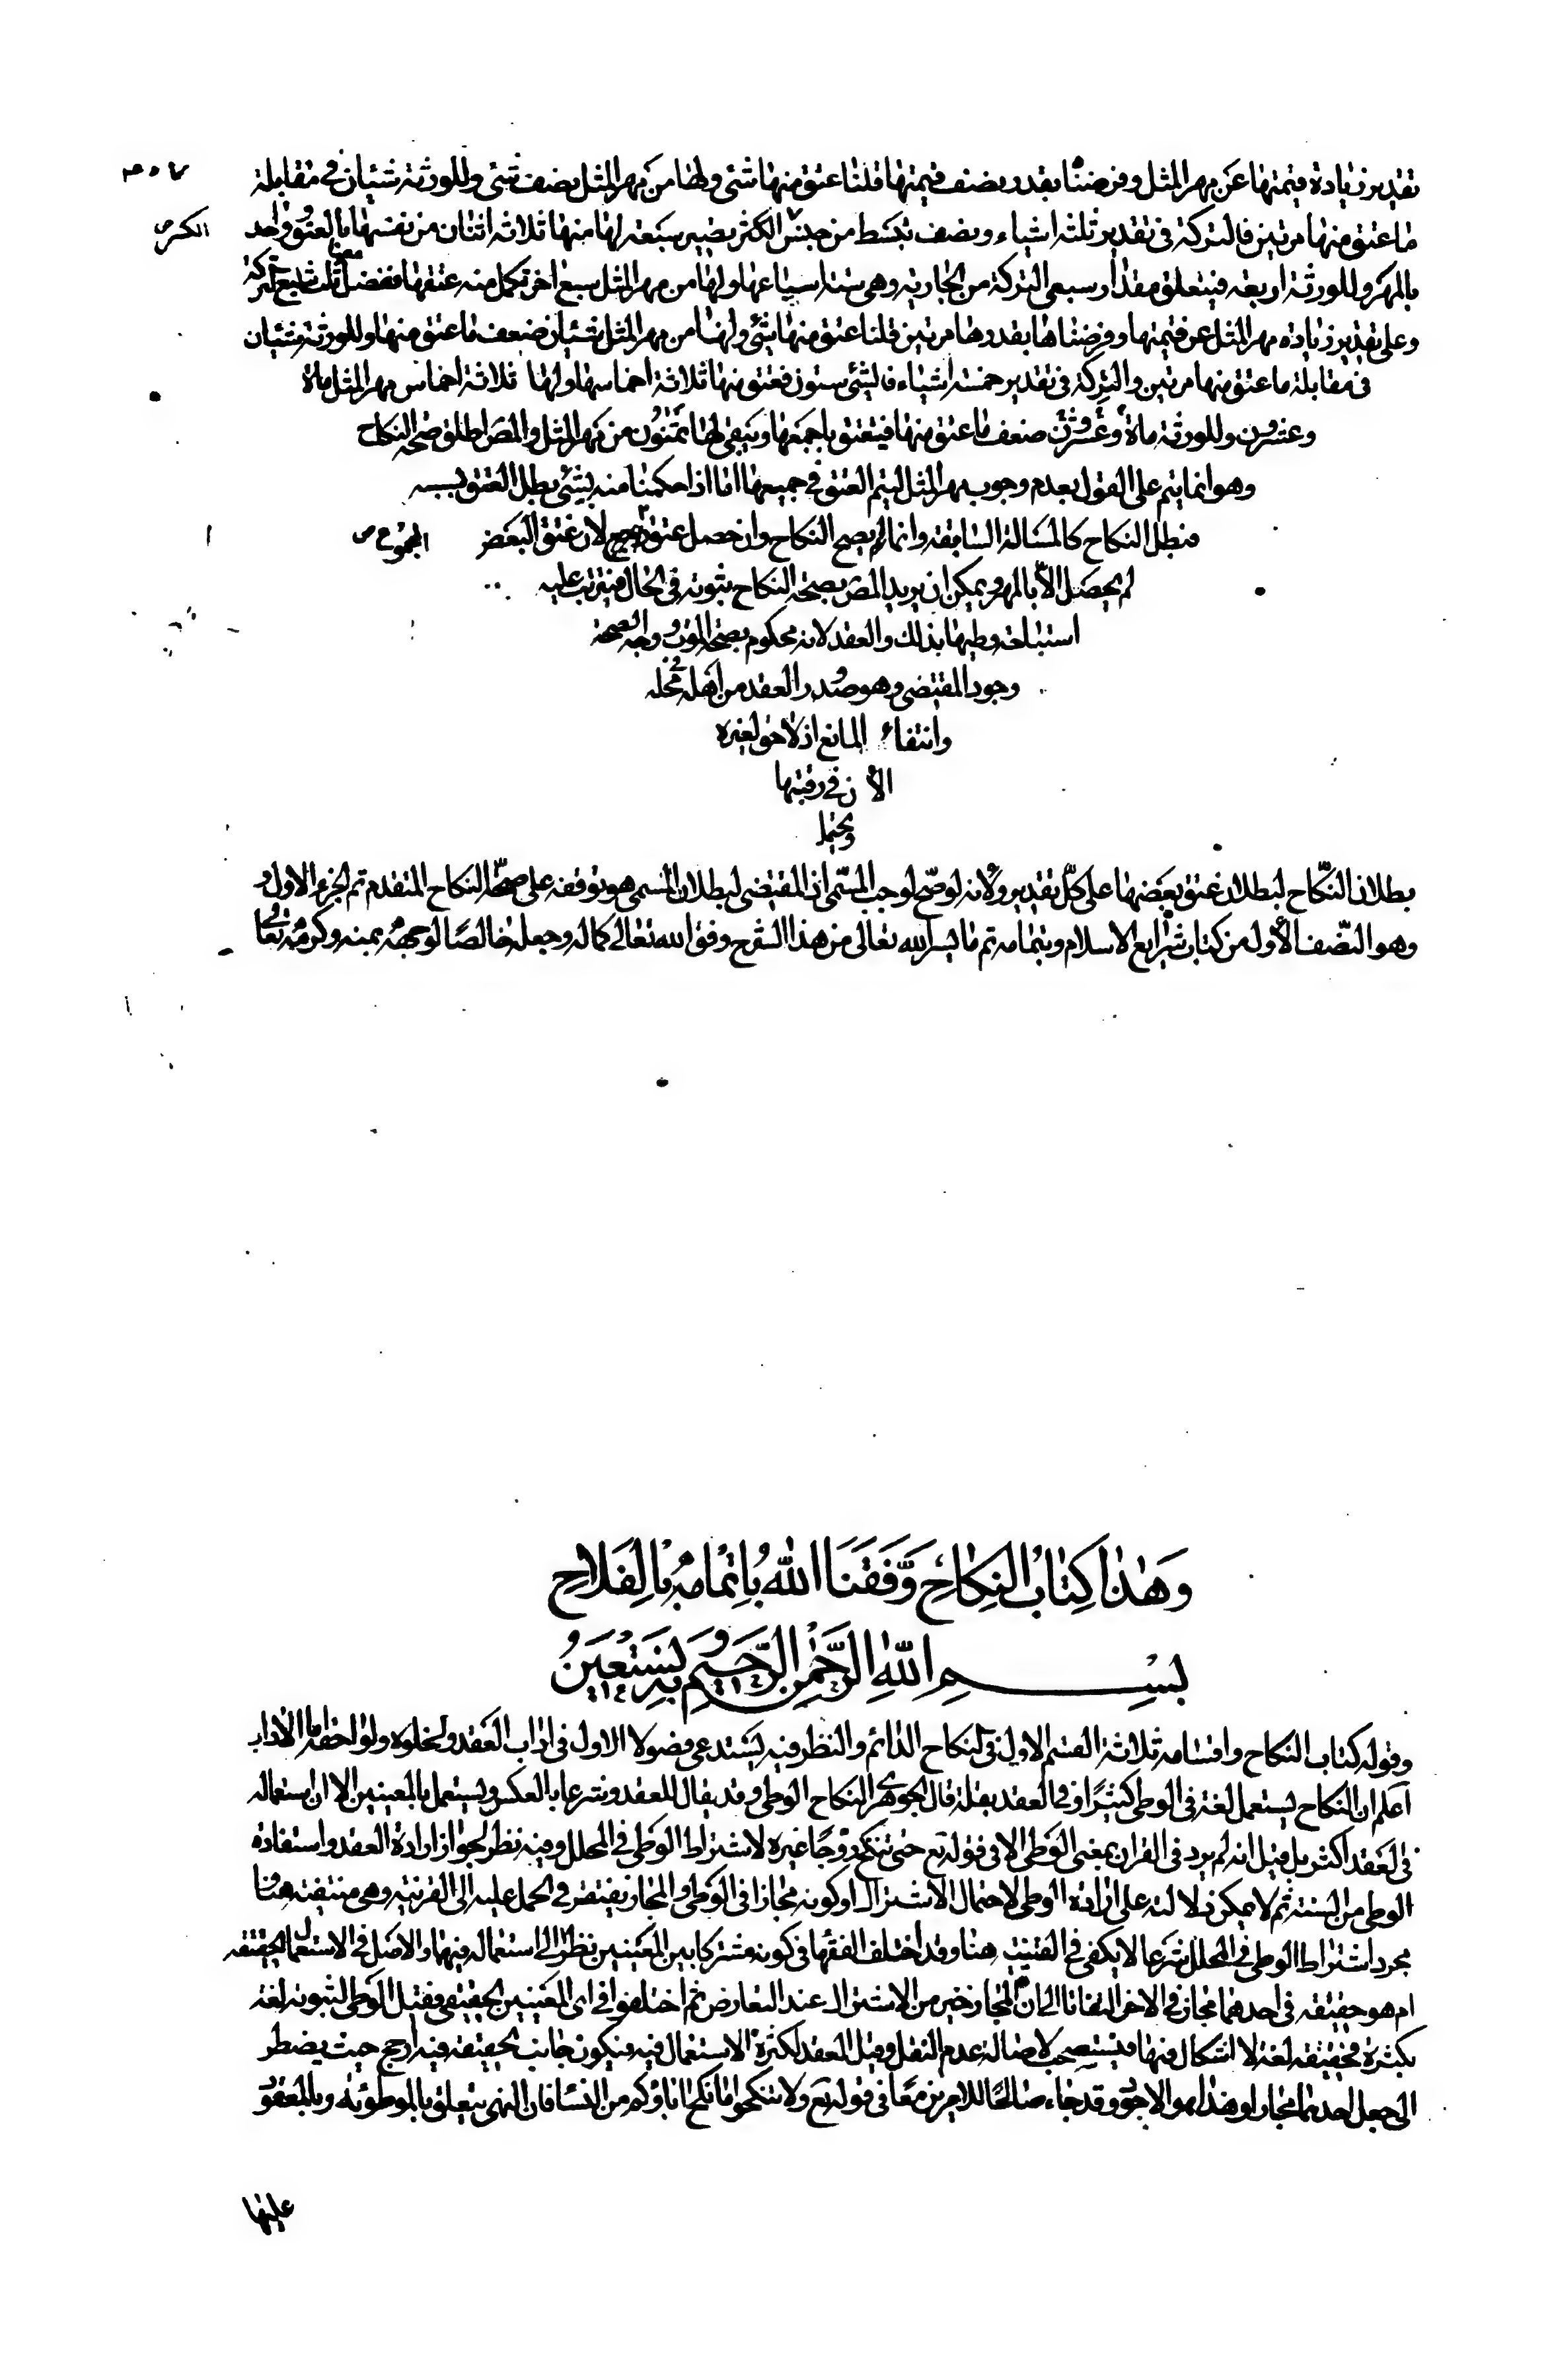 تقدير زيادة قيمتها عن مهر المثل وفرضنا بقدر نصف قيمتها قلنا عتق منها شئ ولها من مهر المثل نصف شئ وللورثة شيئان في مقابلة
ما عتق منها مرتين فالتركة في تقدير ثلثة اشياء ونصف تبسط من جنس الكسر يصير سبعة لها منها ثلاثة اثنان من نفسها بالعتق وواحد
الكسر ص
بالمهر وللورثة اربعة فيتعلق مقدار سبعي التركة من الجارية وهي ستة اسباعها ولها من مهر المثل سبع اخر تكمل منه عتقها ففضل
وعلى تقدير زيادة مهر المثل عن قيمتها وفرضناها بقدرها مرتين قلنا عتق منها شئ ولها من مهر المثل شيئان ضعف ما عتق منها وللورثة شيئان
في مقابلة ما عتق منها مرتين والتركة في تقدير خمسة اشياء فالشئ ستون فعتق منها ثلاثة اخماسها ولها ثلاثة اخماس مهر المثل مائة
وعشرون وللورثة مائة وعشرون ضعف ما عتق منها فينعتق باجمعها ويبقى لها ثمنون من مهر المثل والمص اطلق صحة النكاح
وهو انما يتم على القول بعدم وجوب مهر المثل ليتم العتق في جميعها اما اذا حكمنا منه بشئ بطل العتق بسببه
فبطل النكاح كالمسالة السابقة وانما لم يصح النكاح وان حصل عتق لان عتق البعض
المجموع ص
لم يحصل الا بالمهر ويمكن ان يريد المص بصحة النكاح ثبوته في الحال فيترتب عليه
استباحة وطيها بذلك والعقد لانه محكوم بصحته ووجه الصحة
وجود المقتضي وهو صدور العقد من اهله في محله
وانتفاء المانع اذ لا حق لغيره
الآن في رقبتها
ويحتمل
بطلان النكاح لبطلان عتق بعضها على كل تقدير ولانه لو صح لوجب المسمى اذ المقتضي لبطلان المسمى هو توقفه على صحة النكاح المتقدم تم الجزء الاول و
وهو النصف الاول من كتاب شرايع الاسلام وبتمامه تم ما يسر الله تعالى من هذا الشرح وفق الله تعالى كماله وجعله خالصا لوجهه بمنه وكرمه تعالى
وهذا كتاب النكاح وفقنا الله باتمامه بالفلاح
بسم الله الرحمن الرحيم وبه نستعين
وقوله كتاب النكاح واقسامه ثلاثة القسم الاول في النكاح الدائم والنظر فيه يستدعي فصولا الاول في اداب العقد والخلوة ولواحقهما الاداب
اعلم ان النكاح يستعمل لغة في الوطي كثيرا وفي العقد بقلة قال الجوهري النكاح الوطي وقد يقال للعقد وشرعا بالعكس ويستعمل بالمعنيين الا ان استعماله
في العقد اكثر بل قيل انه لم يرد في القران بمعنى الوطي الا في قوله تع حتى تنكح زوجا غيره لاشتراط الوطي في المحلل وفيه نظر لجواز ارادة العقد واستفادة
الوطي من السنة ثم لا يمكن دلالته على ارادة الوطي لاحتمال الاشتراك او كونه مجازا في الوطي والمجاز يفتقر في الحمل عليه الى القرنية وهي منتفية هنا و
مجرد اشتراط الوطي في المحلل شرعا لا يكفي في القرينة هنا وقد اختلف الفقها في كونه مشتركا بين المعنيين نظرا الى استعماله فيهما والاصل في الاستعمال الحقيقة
ام هو حقيقة في احدهما مجاز في الاخر التفاتا الى ان المجاز خير من الاشتراك عند التعارض ثم اختلفوا في اى المعنيين الحقيقي فقيل الوطي لثبوته لغة
بكثرة فحقيقة لغة لا اشكال فيها فيستصحب لاصالة عدم النقل وقيل العقد لكثرة الاستعمال فيه فيكون جانب الحقيقة فيه ارجح حيث يضطر
الى جعل احدهما مجازا وهذا هو الاجود وقد جاء صالحا للامرين معا في قوله تع ولا تنكحوا ما نكح اباؤكم من النسا فان النهي يتعلق بالموطوئة وبالمعقود
عليها